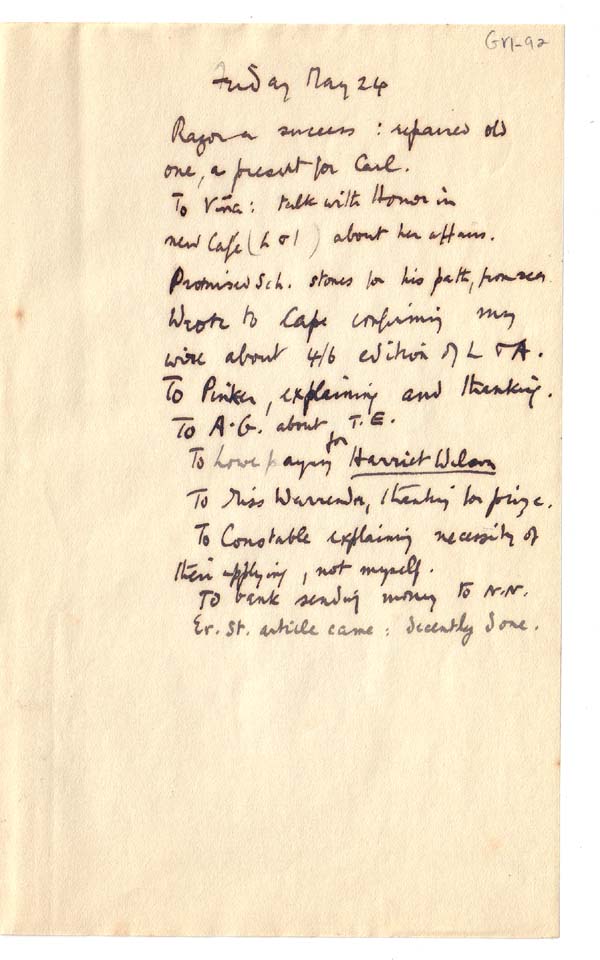 GM-92
Friday May 24
Razor a success : repaired old
one, a present for Carl.
To Viña : talk with Honor in
new Café (L & I) about her affairs.
Promised Sch. stones for his path, from sea
Wrote to Cape confirming my
wire about 4/6 edition of L & A.
To Pinker, explaining and thanking.
To A.G. about T.E.
To Lowe paying for Harriet Wilson
To Miss Warrender, thanking for prize.
To Constable explaining necessity of
their applying, not myself.
To bank sending money to N.N.
Ev. St. article came : decently done.